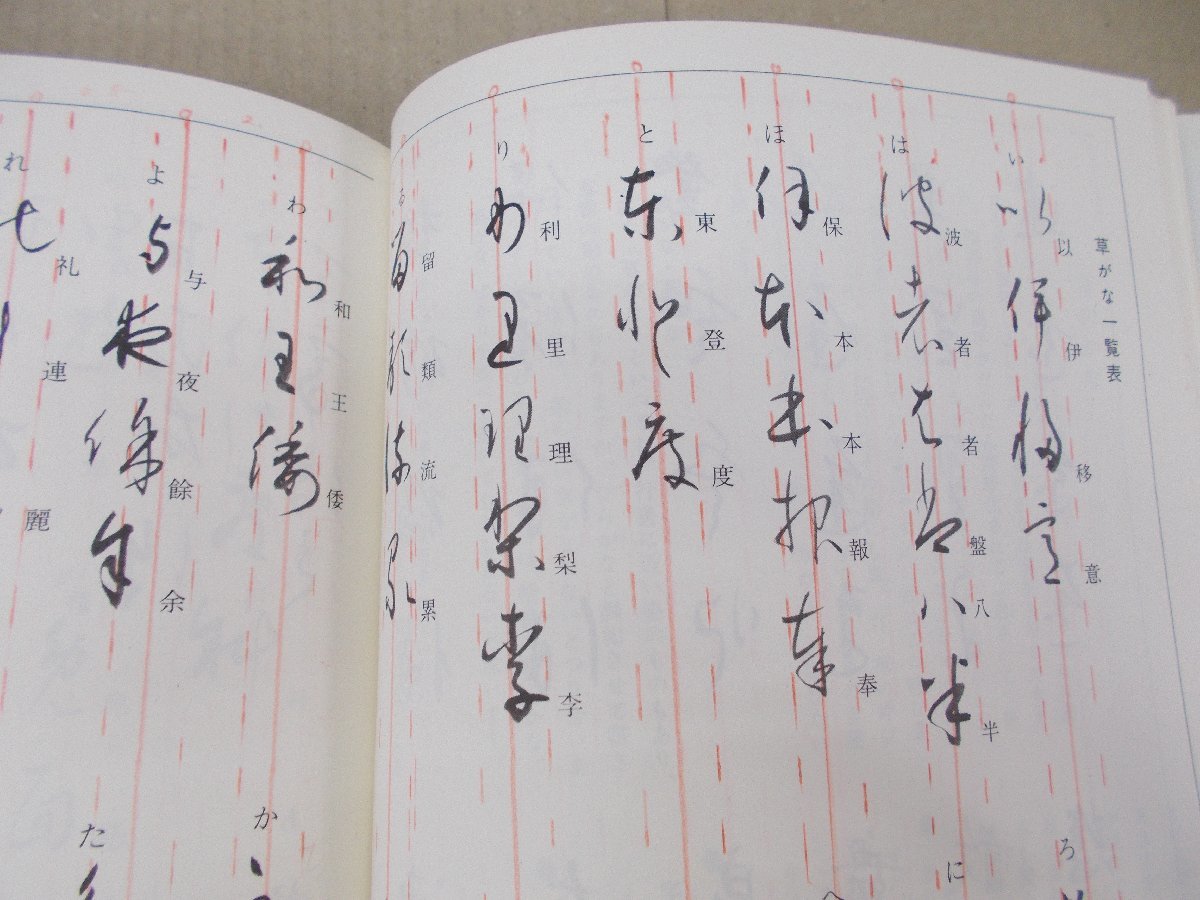 草がな一覧表
い 以 伊 移 意
は 波 者 者 盤 八 半
ほ 保 本 本 報 奉
と 東 登 度
り 利 里 理 梨 李
る 留 類 流 累
わ 和 王 倭
よ 与 夜 餘 余
れ 礼 連 麗
ろ
に
か
た